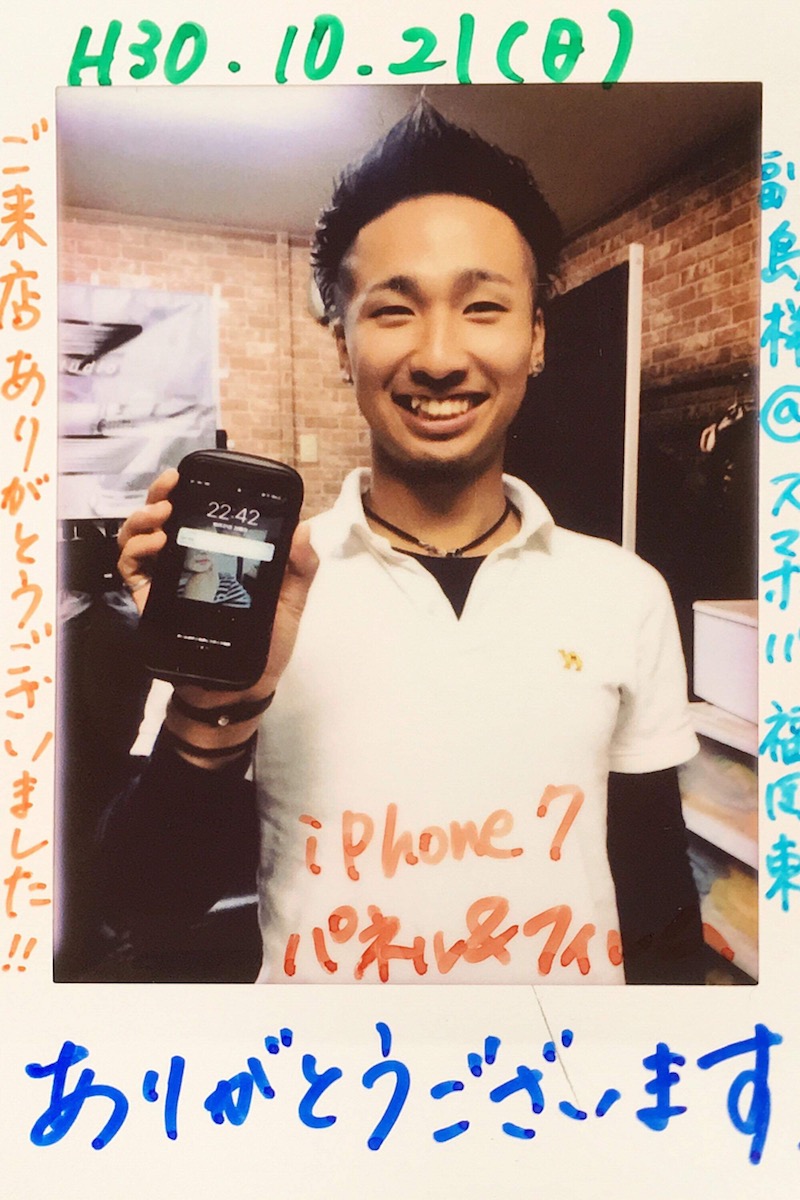 H30.10.21(日)
ご来店ありがとうございました!!
副島様@スマホ修理 福岡東
22:42
iPhone7
パネル&フィルム
ありがとうございます